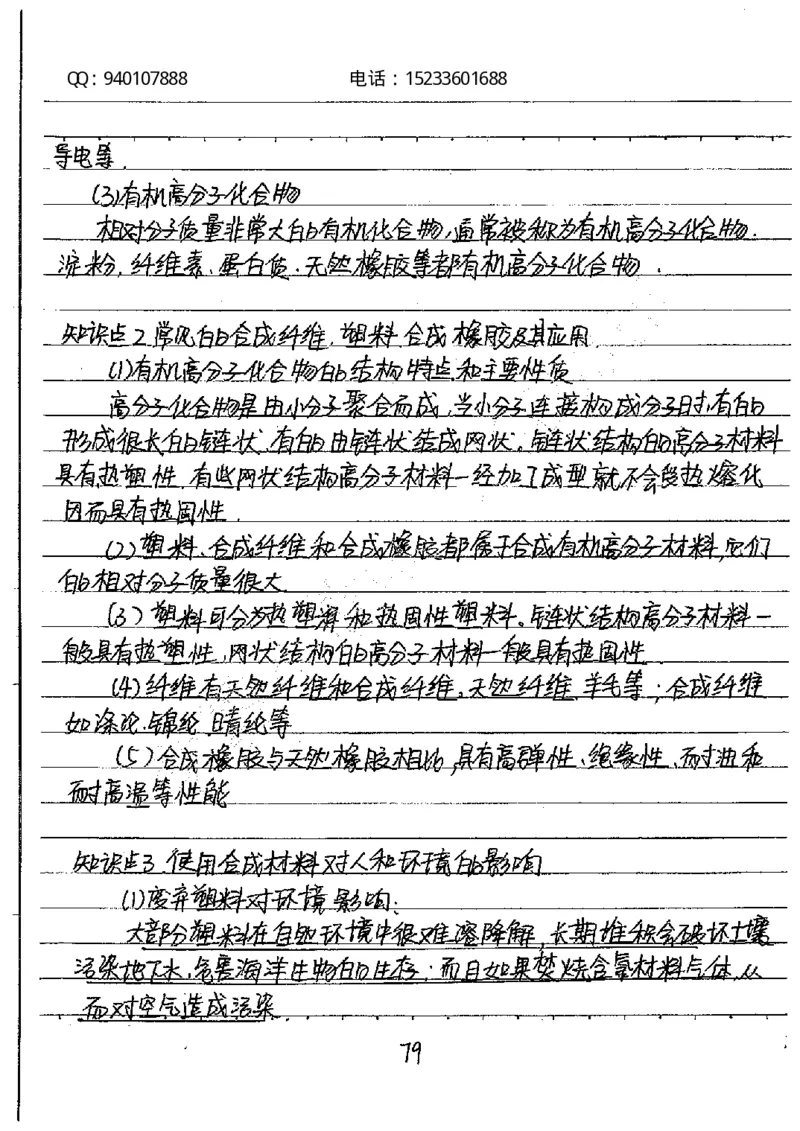 QQ：940107888 电话：15233601688
导电等.
(3)有机高分子化合物
相对分子质量非常大的有机化合物，通常被称为有机高分子化合物.
淀粉，纤维素、蛋白质、天然橡胶等都有机高分子化合物.
知识点2 常见的合成纤维、塑料 合成橡胶及其应用
(1)有机高分子化合物的结构特点和主要性质
高分子化合物是由小分子聚合而成，当小分子连接构成分子时，有的
形成很长的链状，有的由链状结成网状。链状结构的高分子材料
具有热塑性，有些网状结构高分子材料一经加工成型就不会受热熔化
因而具有热固性.
(2)塑料、合成纤维和合成橡胶都属于合成有机高分子材料，它们
的相对分子质量很大
(3)塑料可分为热塑料和热固性塑料。链状结构高分子材料一
般具有热塑性，网状结构的高分子材料一般具有热固性
(4)纤维有天然纤维和合成纤维。天然纤维 羊毛等；合成纤维
如涤论、锦纶 晴纶等
(5)合成橡胶与天然橡胶相比，具有高弹性、绝缘性、耐油和
耐高温等性能
知识点3 使用合成材料对人和环境的影响
(1)废弃塑料对环境影响：
大部分塑料在自然环境中很难降解，长期堆积会破坏土壤
污染地下水，危害海洋生物的生存；而且如果焚烧含氯材料气体，从
而对空气造成污染.
79